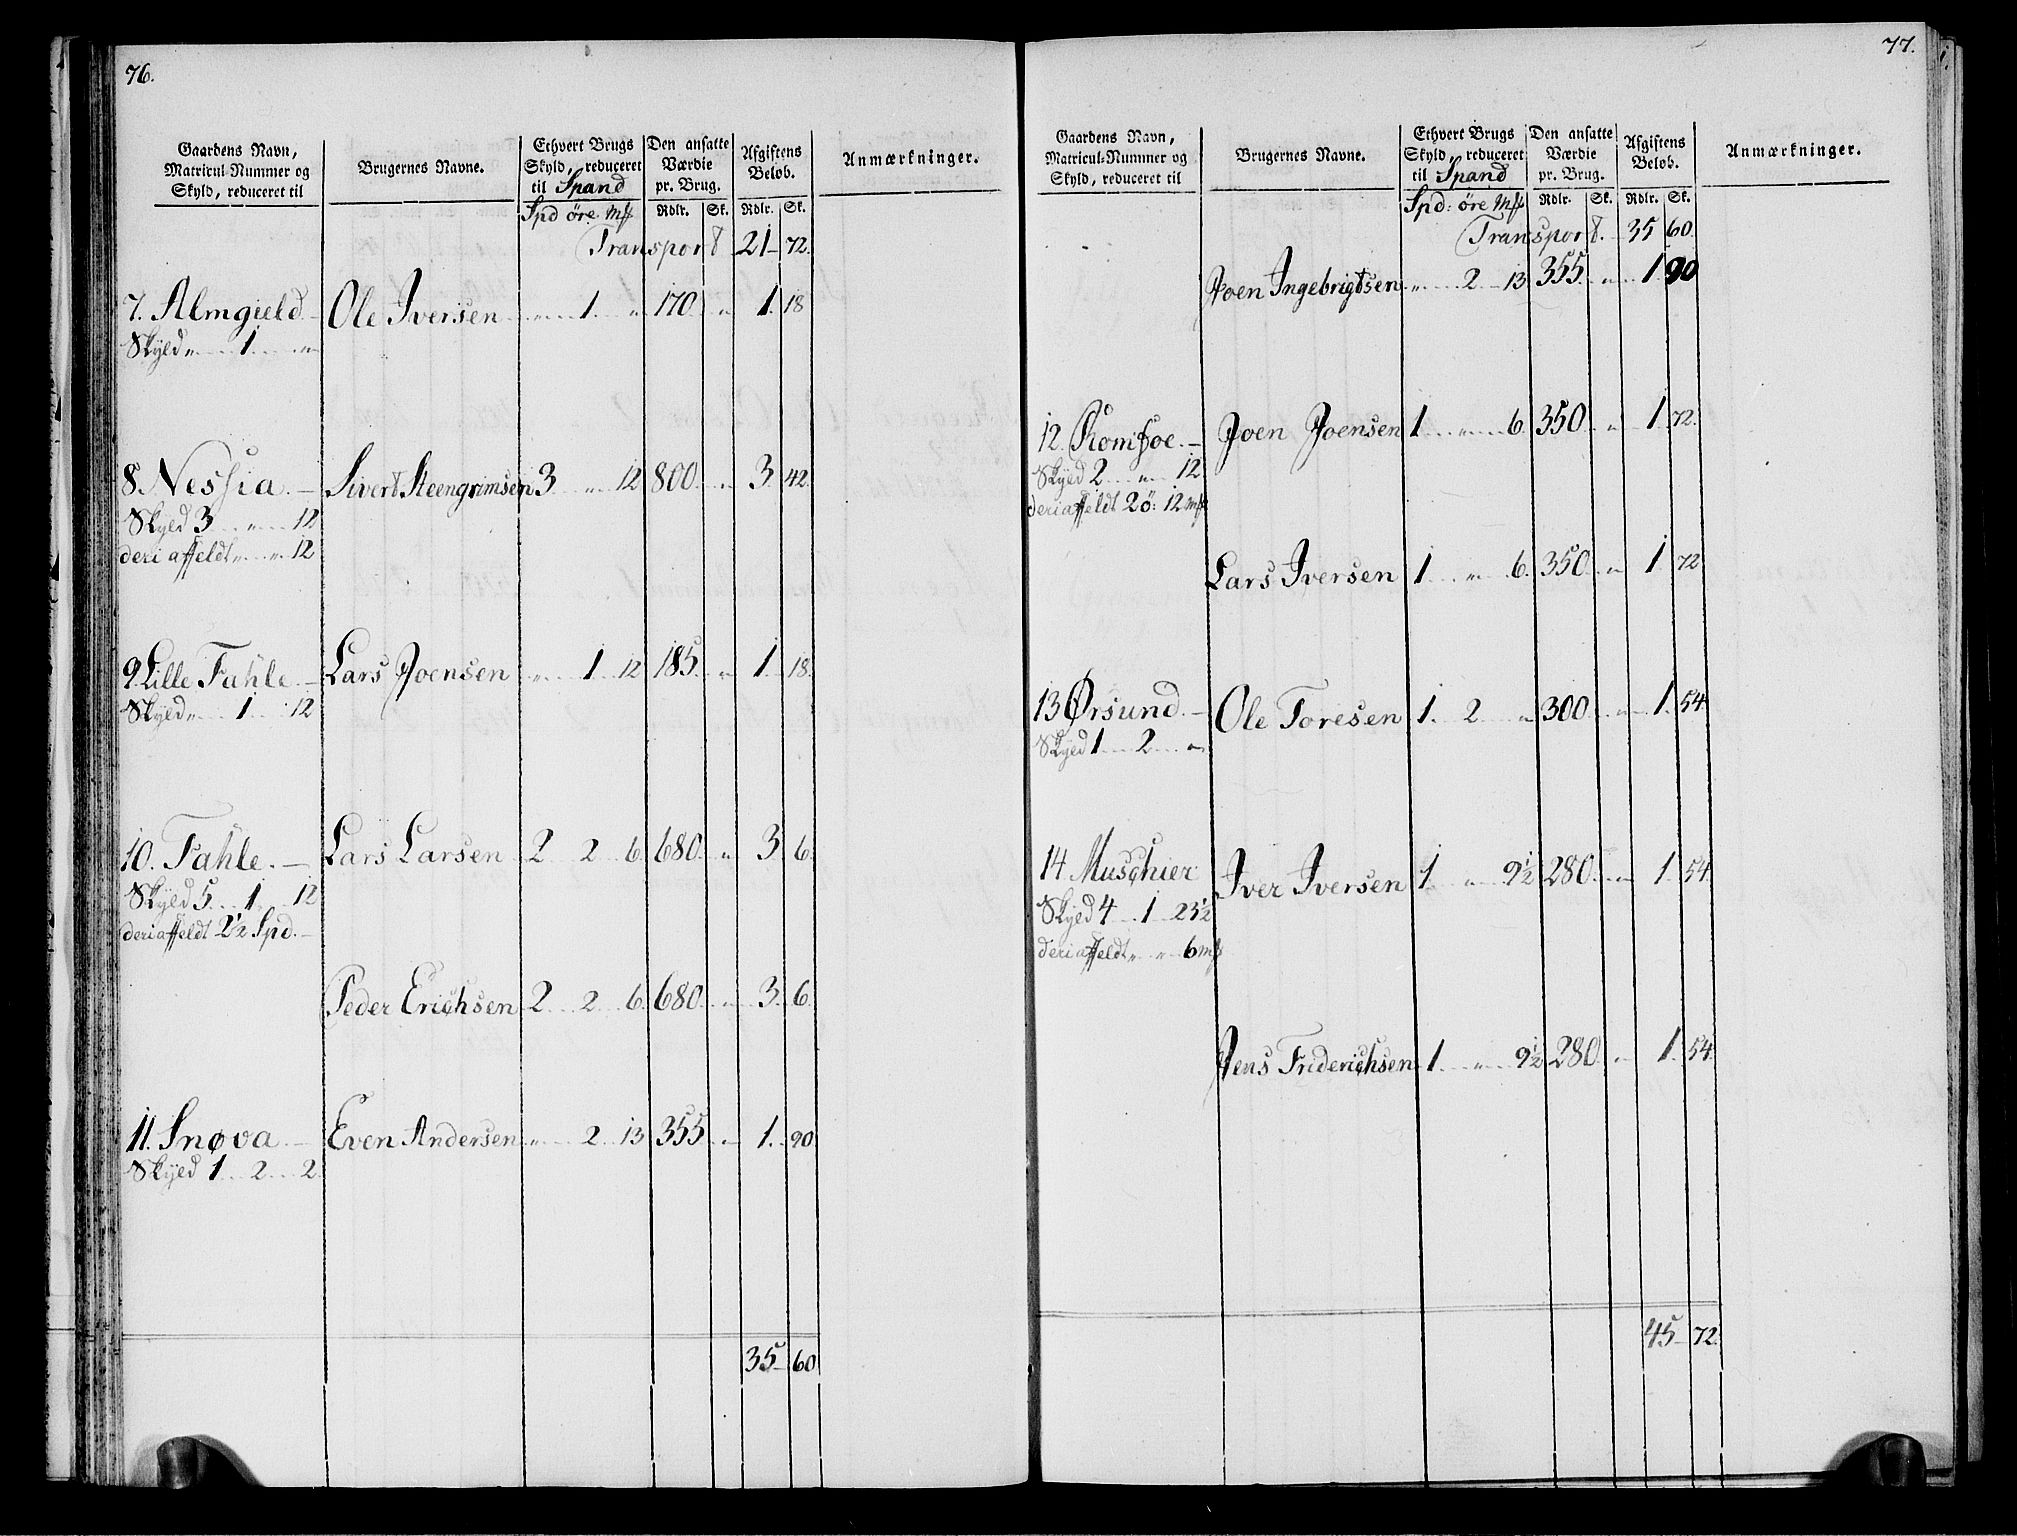 76.
Gaardens Navn, Matricul-Nummer og Skyld, reduceret til
Brugernes Navne.
Ethvert Brugs Skyld, reduceret til Spand
Den ansatte Værdie pr. Brug.
Afgiftens Beløb.
Anmærkninger.
Spd øre Mk Rdlr. Sk. Rdlr. Sk.
Transport 21 72.
7. Almgield Ole Iversen „ 1. „ 170. „ 1. 18
Skyld „ 1 „
8. Nessia. Sivert Steengrimsen 3 „ 12 800. „ 3. 42.
Skyld 3 „ 12
deri affeldt „ „ 12
9. Lille Fahle. Lars Joensen „ 1 12 185. „ 1. 18.
Skyld „ 1 12
10. Fahle. Lars Larsen 2 2 6. 680. „ 3. 6.
Skyld 5 1 12
deri affeldt 2½ Spd.
Peder Erichsen 2 2 6. 680. „ 3. 6.
11. Snøva. Even Andersen „ 2 13 355 „ 1. 90.
Skyld 1 2 2.
35 60
77.
Gaardens Navn, Matricul-Nummer og Skyld, reduceret til
Brugernes Navne.
Ethvert Brugs Skyld, reduceret til Spand
Den ansatte Værdie pr. Brug.
Afgiftens Beløb.
Anmærkninger.
Spd: øre Mk Rdlr. Sk. Rdlr. Sk.
Transport. 35 60.
Joen Ingebrigtsen „ 2 13 355. „ 1. 90
12. Romfoe. Joen Joensen 1 „ 6. 350. „ 1 72.
Skyld 2 „ 12
deri affeldt 2ö: 12 mk
Lars Iversen 1 „ 6. 350. „ 1 72
13 Ørsund. Ole Toresen 1. 2 „ 300. „ 1. 54
Skyld 1 2 „
14 Muschier Iver Iversen 1 „ 9½ 280. „ 1. 54.
Skyld 4 1 23½
deri affeldt „ „ 6 mk
Jens Friderichsen 1 „ 9½ 280. „ 1. 54.
45 72.